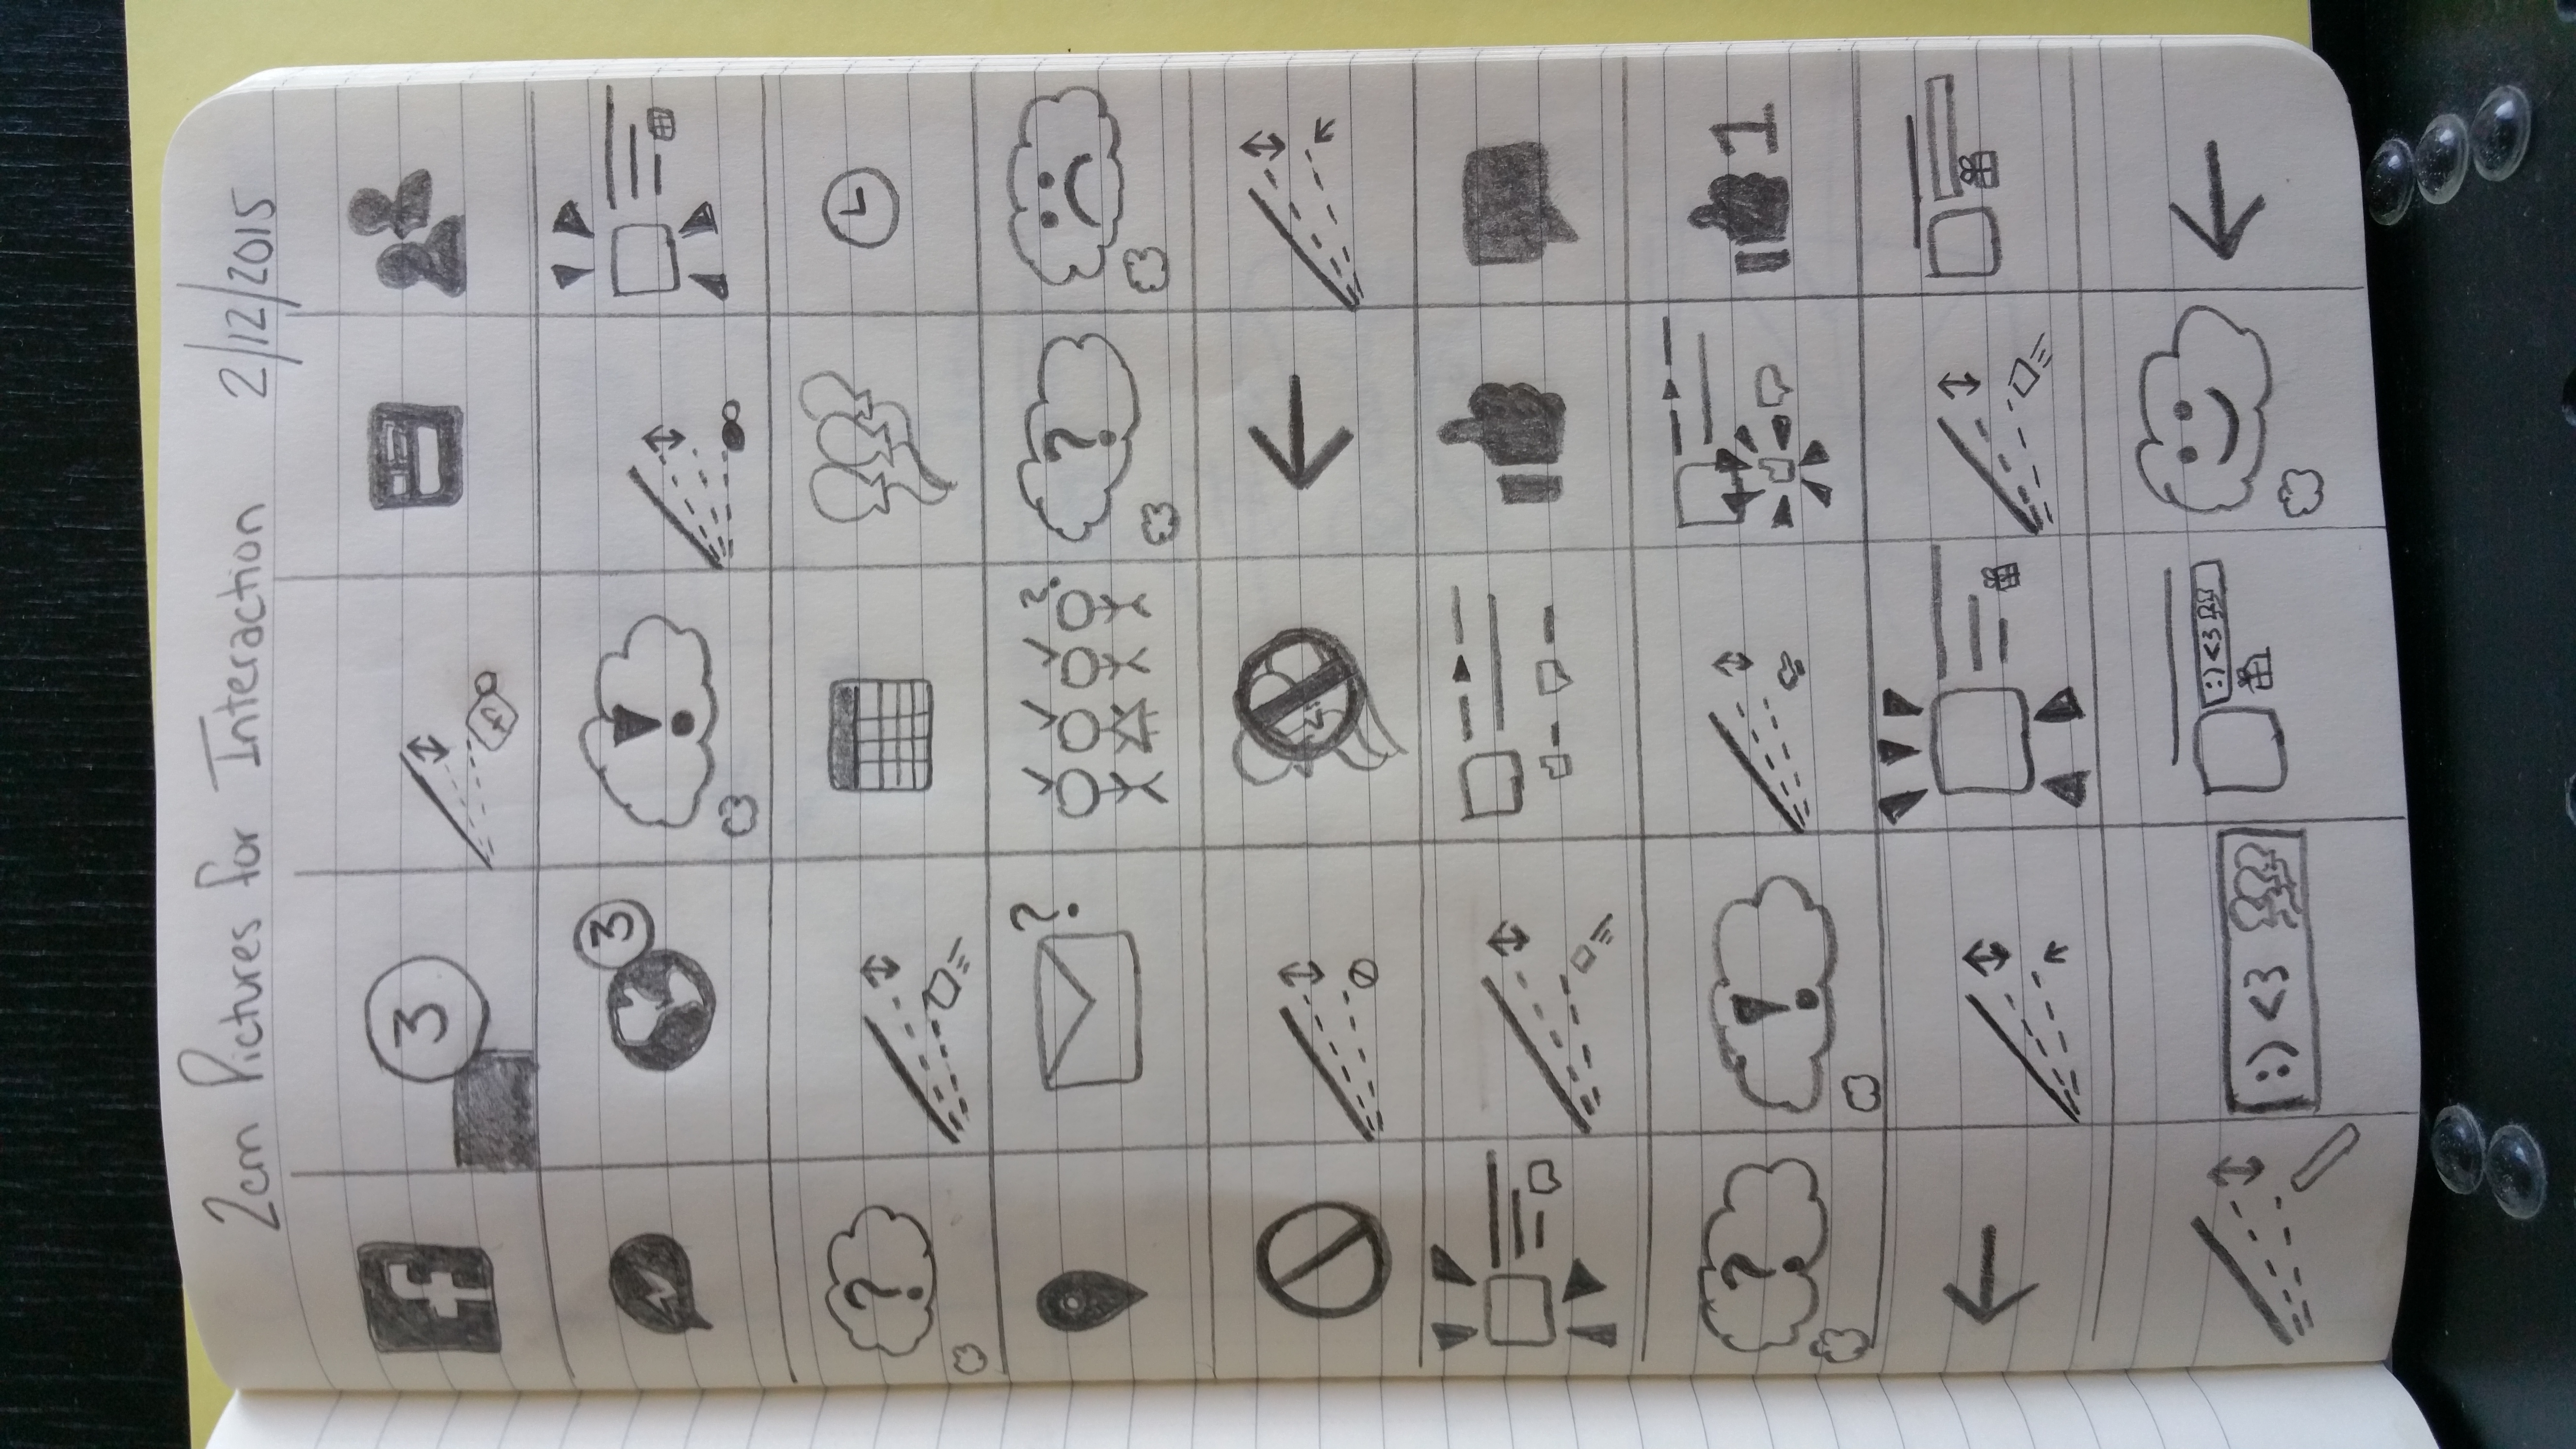 2cm Pictures for Interaction 2/12/2015
f 3 f
3 !
?
? ? ?
? ! 1
:) <3 :) <3